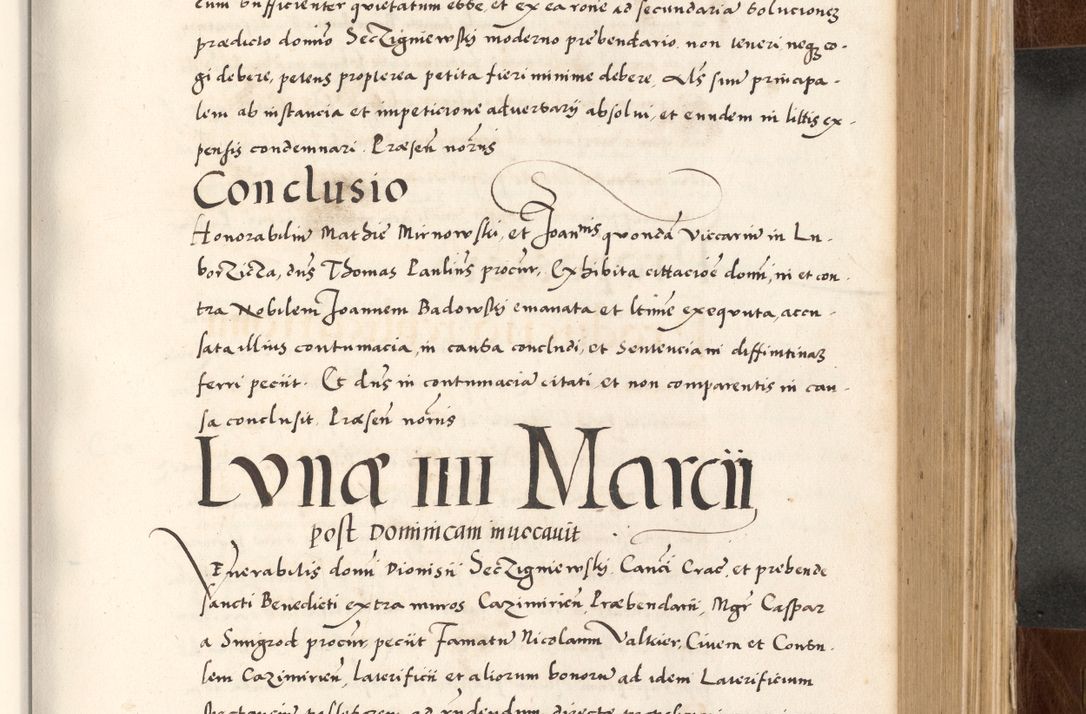 cum sufficienter quietatum esse, et ex ea rone ad secundaria solucionez
prædicto domino SecZigniewski moderno prebendario non teneri neqz co-
gi debere, petens propterea petita fieri minime debere, Als suum principa-
lem ab instancia et impeticione adversarij absolvi, et eundem in littis ex-
pensis condemnari. Præsen norÿs
Conclusio
Honorabiliū Mathie Mirnowski, et Joannis quondā Viccariū in Lu-
borZicZa, dns Thomas Paulins procur, Exhibita cittacioē domi, in et con-
tra Nobilem Joannem Badowski emanata et ltime exequuta, accu-
sata illius contumacia, in causa concludi, et Sentenciam diffinitinaz
ferri peciit. Et dns in contumacia citati et non comparentis in cau-
sa conclusit. Præsen norÿs
Lvnæ IIII Marcii
post Dominicam invocavit
Venerabilis domi Dionisii SecZigniewski Canci Crac, et prebende
sancti Benedicti extra muros Cazimirien, Præbendarii, Mgr Caspar
a Sungrod procur, peciit Famatū Nicolaum Valkier, Civem et Consu-
lem CaZimirien, Laterificii et aliorum bonorū ad idem Laterificium